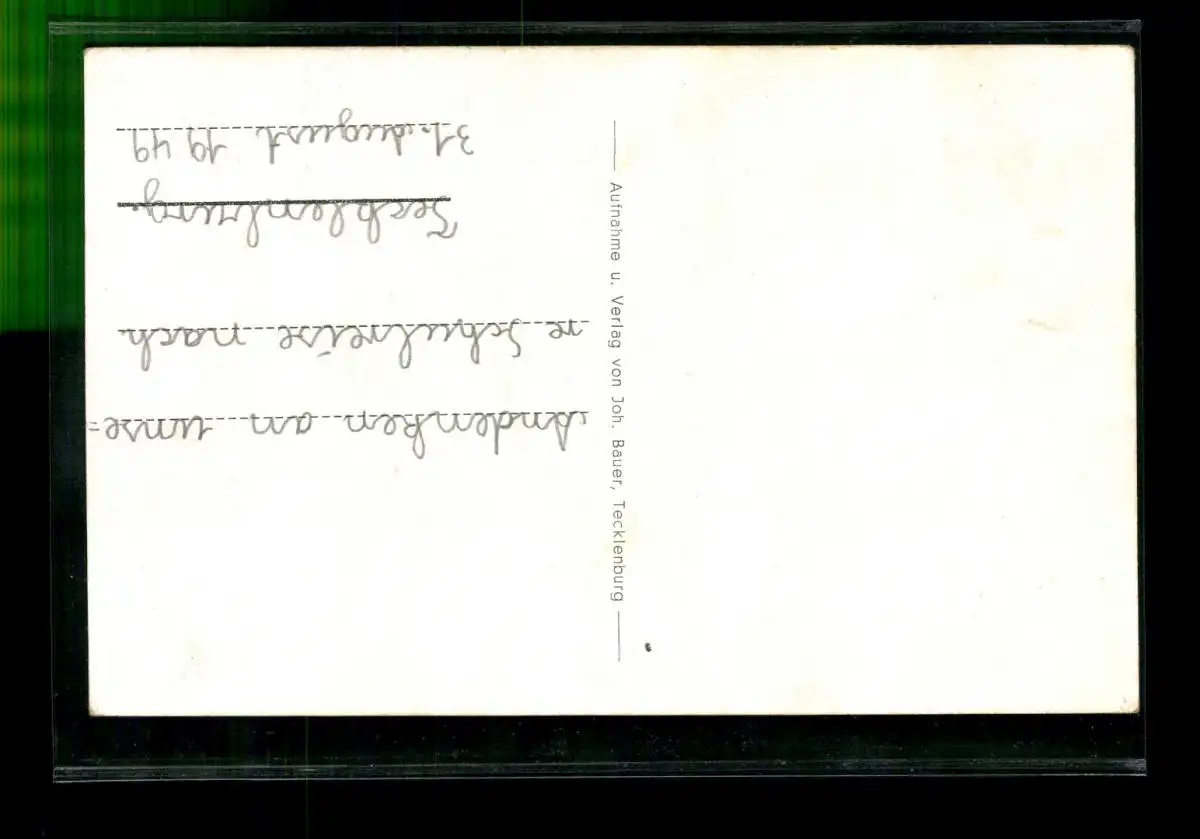 Andenken an unse=
re Schulreise nach
Tecklenburg.
31. August 1949.
Aufnahme u. Verlag von Joh. Bauer, Tecklenburg